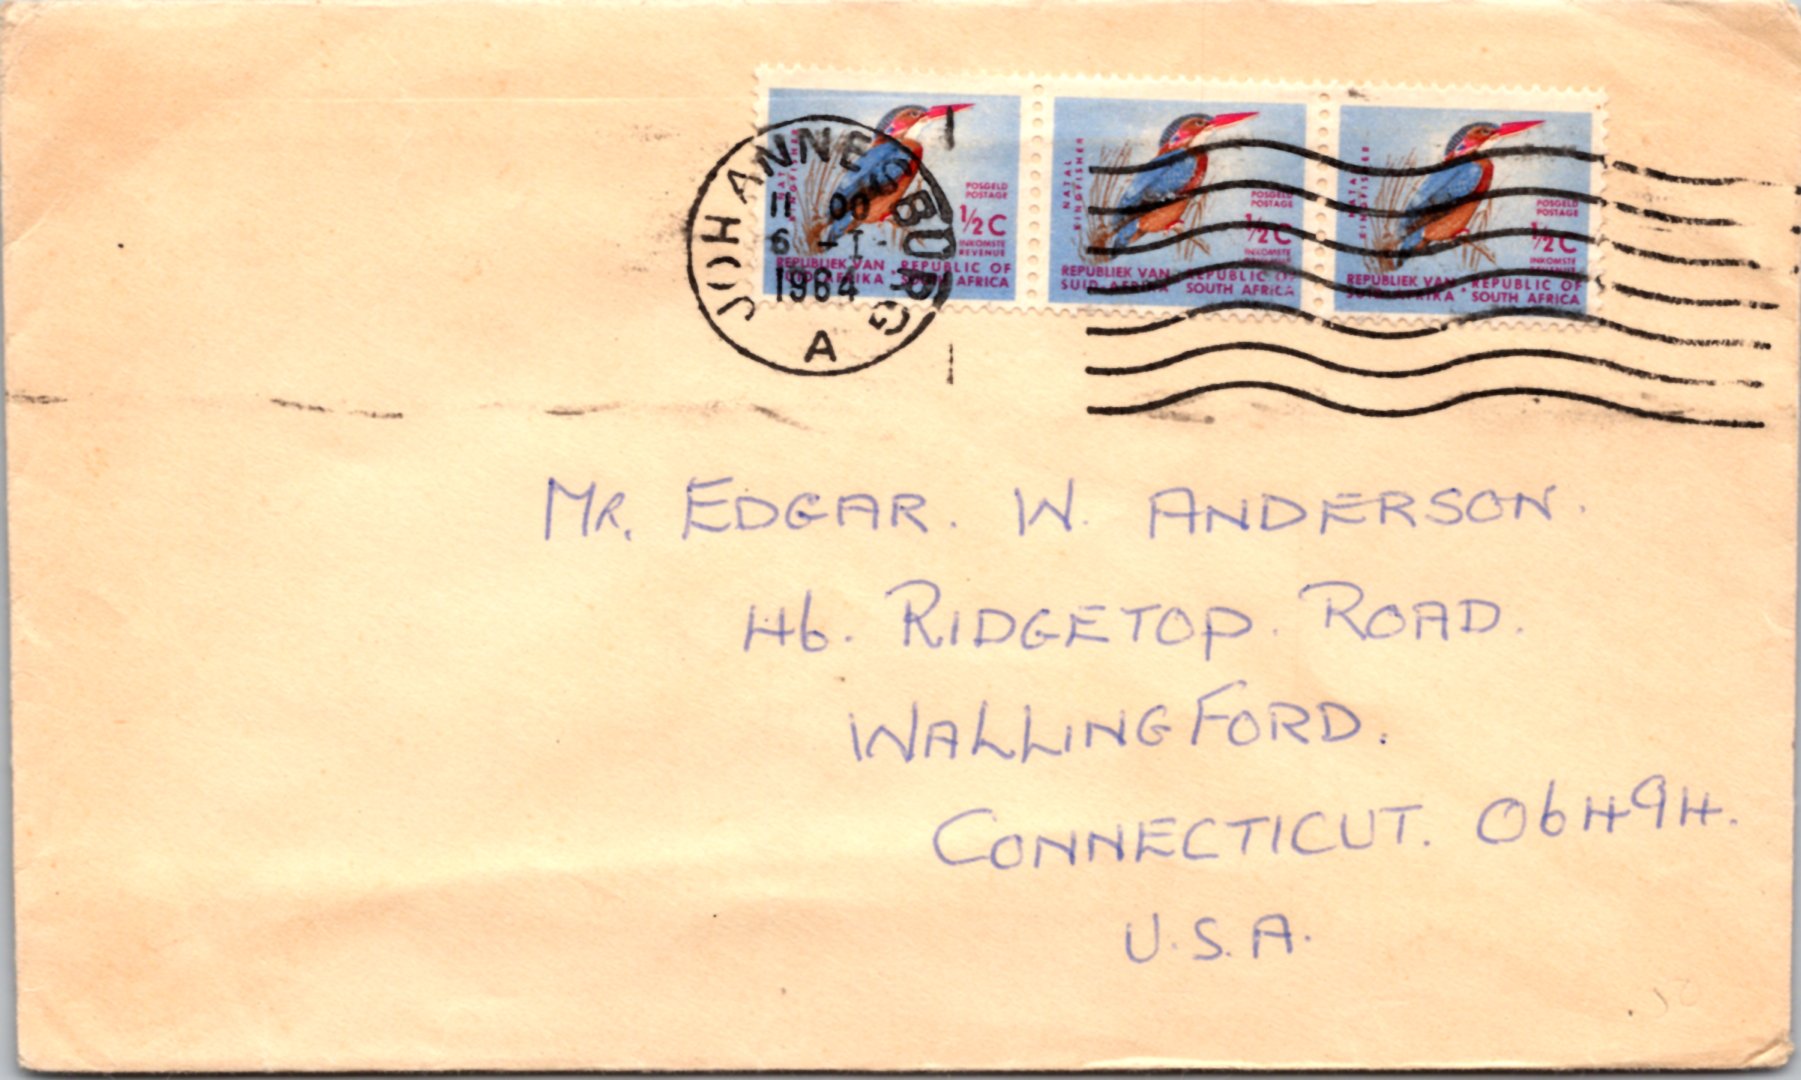 JOHANNESBURG
11 00
6 -I-
1984
A
NATAL
KINGFISHER
POSGELD
POSTAGE
½C
INKOMSTE
REVENUE
REPUBLIEK VAN · REPUBLIC OF
SUID-AFRIKA · SOUTH AFRICA
NATAL
KINGFISHER
POSGELD
POSTAGE
½C
INKOMSTE
REPUBLIEK VAN · REPUBLIC OF
SUID-AFRIKA SOUTH AFRICA
NATAL
KINGFISHER
POSGELD
POSTAGE
½C
INKOMSTE
REPUBLIEK VAN · REPUBLIC OF
SUID-AFRIKA · SOUTH AFRICA
MR. EDGAR. W. ANDERSON.
46. RIDGETOP. ROAD.
WALLINGFORD.
CONNECTICUT. 06494.
U.S.A.